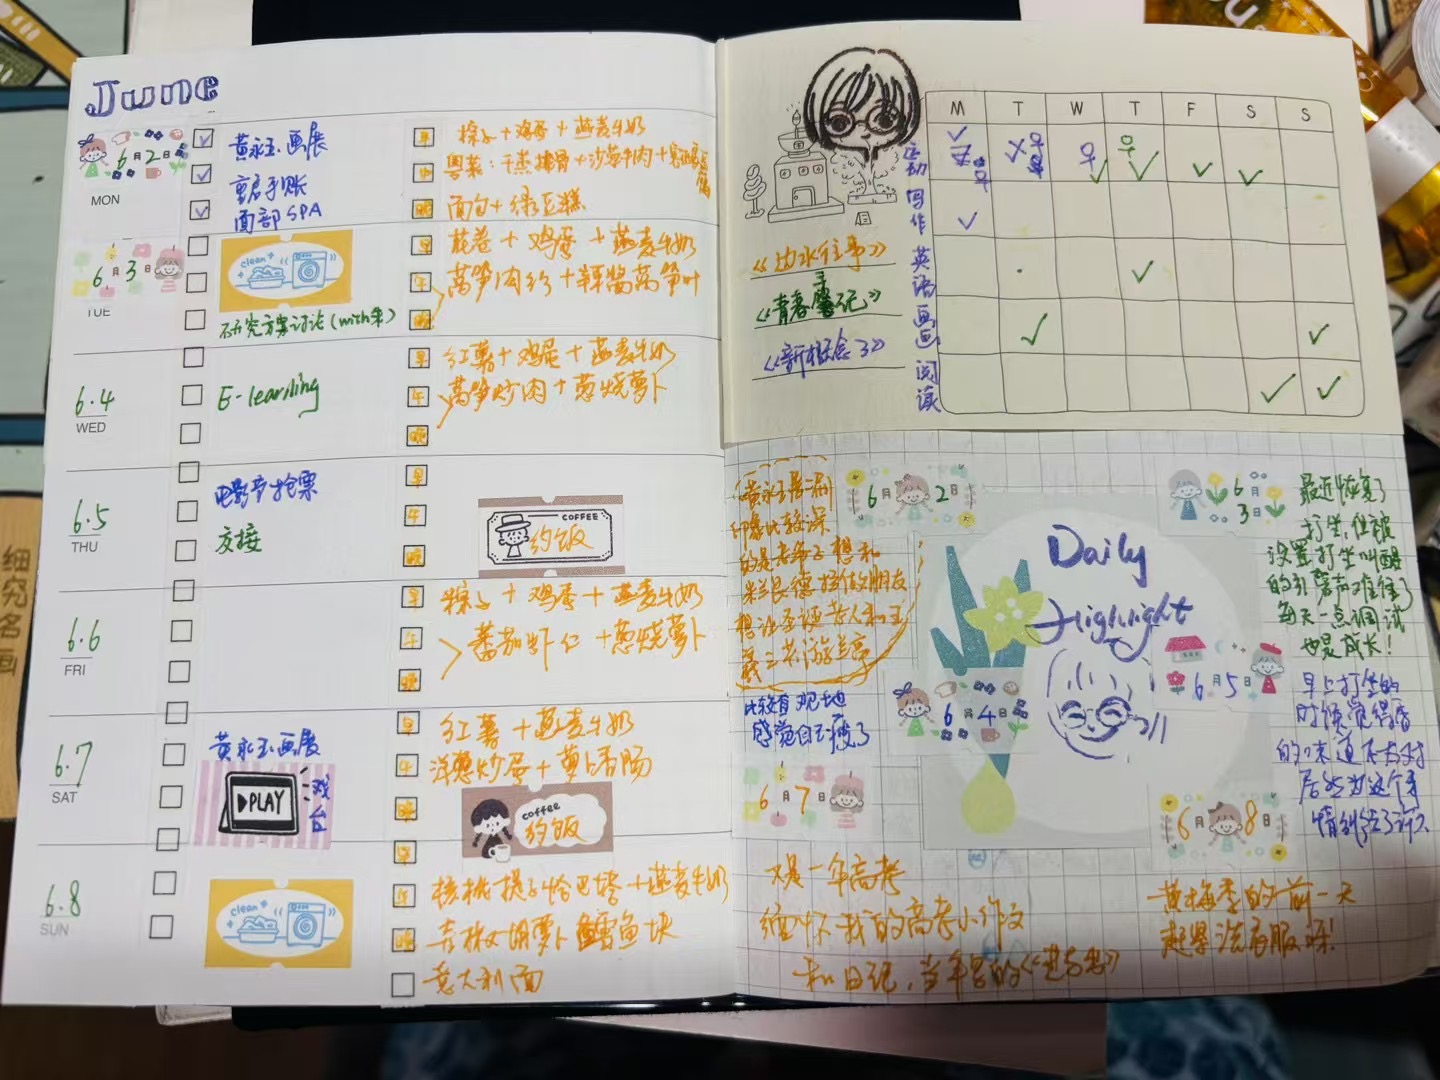 June
6月2日
MON
黄永玉画展
剪唐手账
面部SPA
早 粽子+鸡蛋+燕麦牛奶
午 粤菜:干蒸排骨+沙茶牛肉+
晚 面包+绿豆糕
6月3日
TUE
clean
研究方案讨论(with朱)
早 花卷+鸡蛋+燕麦牛奶
午 莴笋肉丝+辣酱莴笋叶
晚
6.4
WED
E-learning
早 红薯+鸡蛋+燕麦牛奶
午 莴笋炒肉+葱烧萝卜
晚
6.5
THU
电影节抢票
交接
早
午
晚
COFFEE
约饭
6.6
FRI
早 粽子+鸡蛋+燕麦牛奶
午 番茄虾仁+葱烧萝卜
晚
6.7
SAT
黄永玉画展
PLAY
戏台
早 红薯+燕麦牛奶
午 洋葱炒蛋+萝卜香肠
晚
coffee
约饭
6.8
SUN
clean
早
午 核桃提子恰巴塔+燕麦牛奶
晚 青椒胡萝卜鳕鱼块
意大利面
M T W T F S S
运动
写作
英语
画画
阅读
《边水往事》
《青春手记》
《新概念3》
Daily
Highlight
6月2日
(黄永玉展)
印象比较深
的是老爷子想和
兰
6月3日
最近恢复了
打坐,但被
设置打坐叫醒
的引磬声难住了
每天一点调试
也是成长!
6月4日
比较直观地
感觉自己瘦了
6月5日
早上打坐的
时候觉得香
的味道不太对
居然为这个事
情纠结了许久
6月7日
又是一年高考
缅怀我的高考小作文
和日记,当年写的
6月8日
黄梅季的前一天
赶紧洗衣服呀!